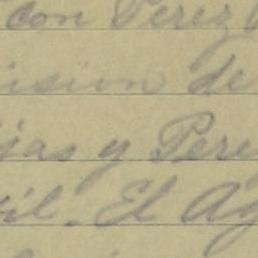 con Perez
ision de
jas y Pere
il. El Ag